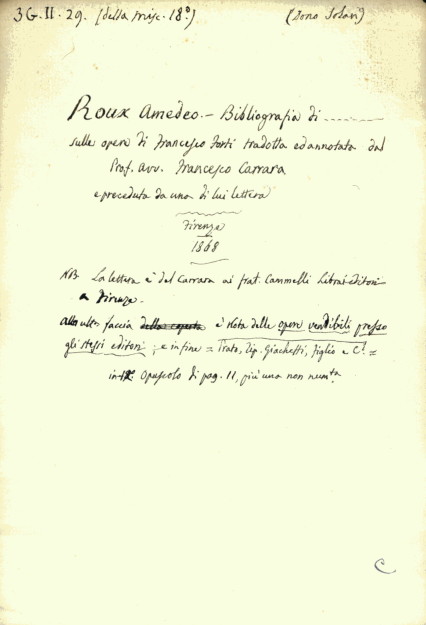 3G.II.29. [della Misc. 18º) (Dono Solari)
Roux Amedeo. – Bibliografia di ..........
sulle opere di Francesco Forti tradotta ed annotata dal
Prof. Avv. Francesco Carrara
e preceduta da una di lui lettera
Firenze
1868
NB. La lettera è del Carrara ai frat. Cammelli Librai-editori
a Firenze.
ultª faccia della coperta è Nota delle opere vendibili presso
gli stessi editori; e in fine = Prato, Tip. Giachetti, figlio e C.º =
in 12. Opuscolo di pag. 11, più una non numta
C